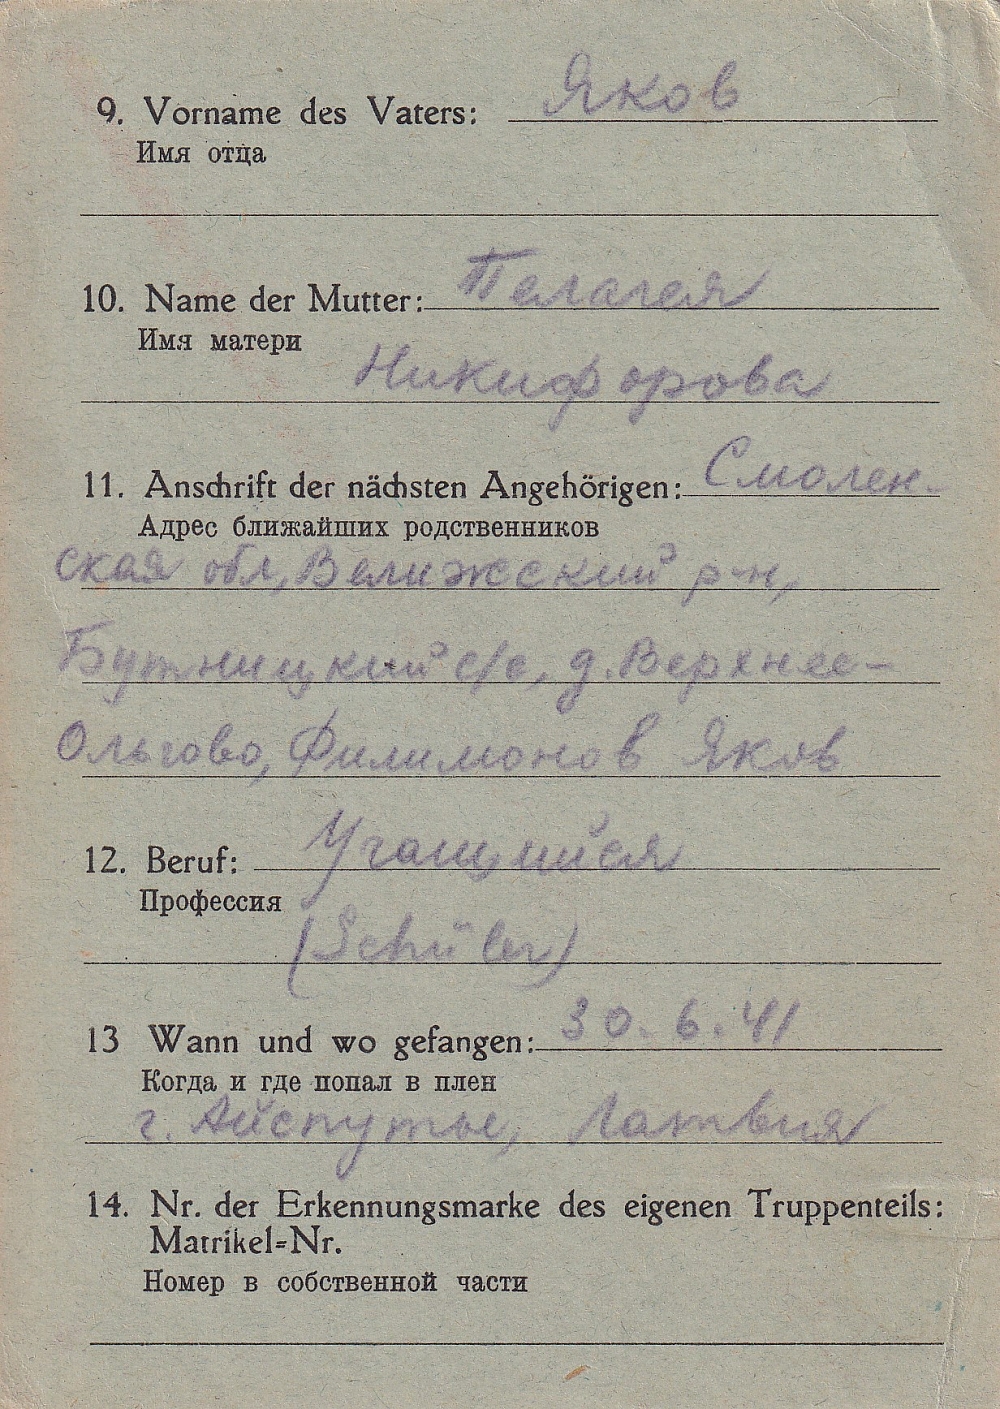 9. Vorname des Vaters: Яков
Имя отца
10. Name der Mutter: Пелагея
Имя матери
Никифорова
11. Anschrift der nächsten Angehörigen: Смолен-
Адрес ближайших родственников
ская обл, Велижский р-н,
Бутницкий с/с, д. Верхнее-
Ольгово, Филимонов Яков
12. Beruf: Учащийся
Профессия
(Schüler)
13 Wann und wo gefangen: 30. 6. 41
Когда и где попал в плен
г. Айспутье, Латвия
14. Nr. der Erkennungsmarke des eigenen Truppenteils:
Matrikel=Nr.
Номер в собственной части